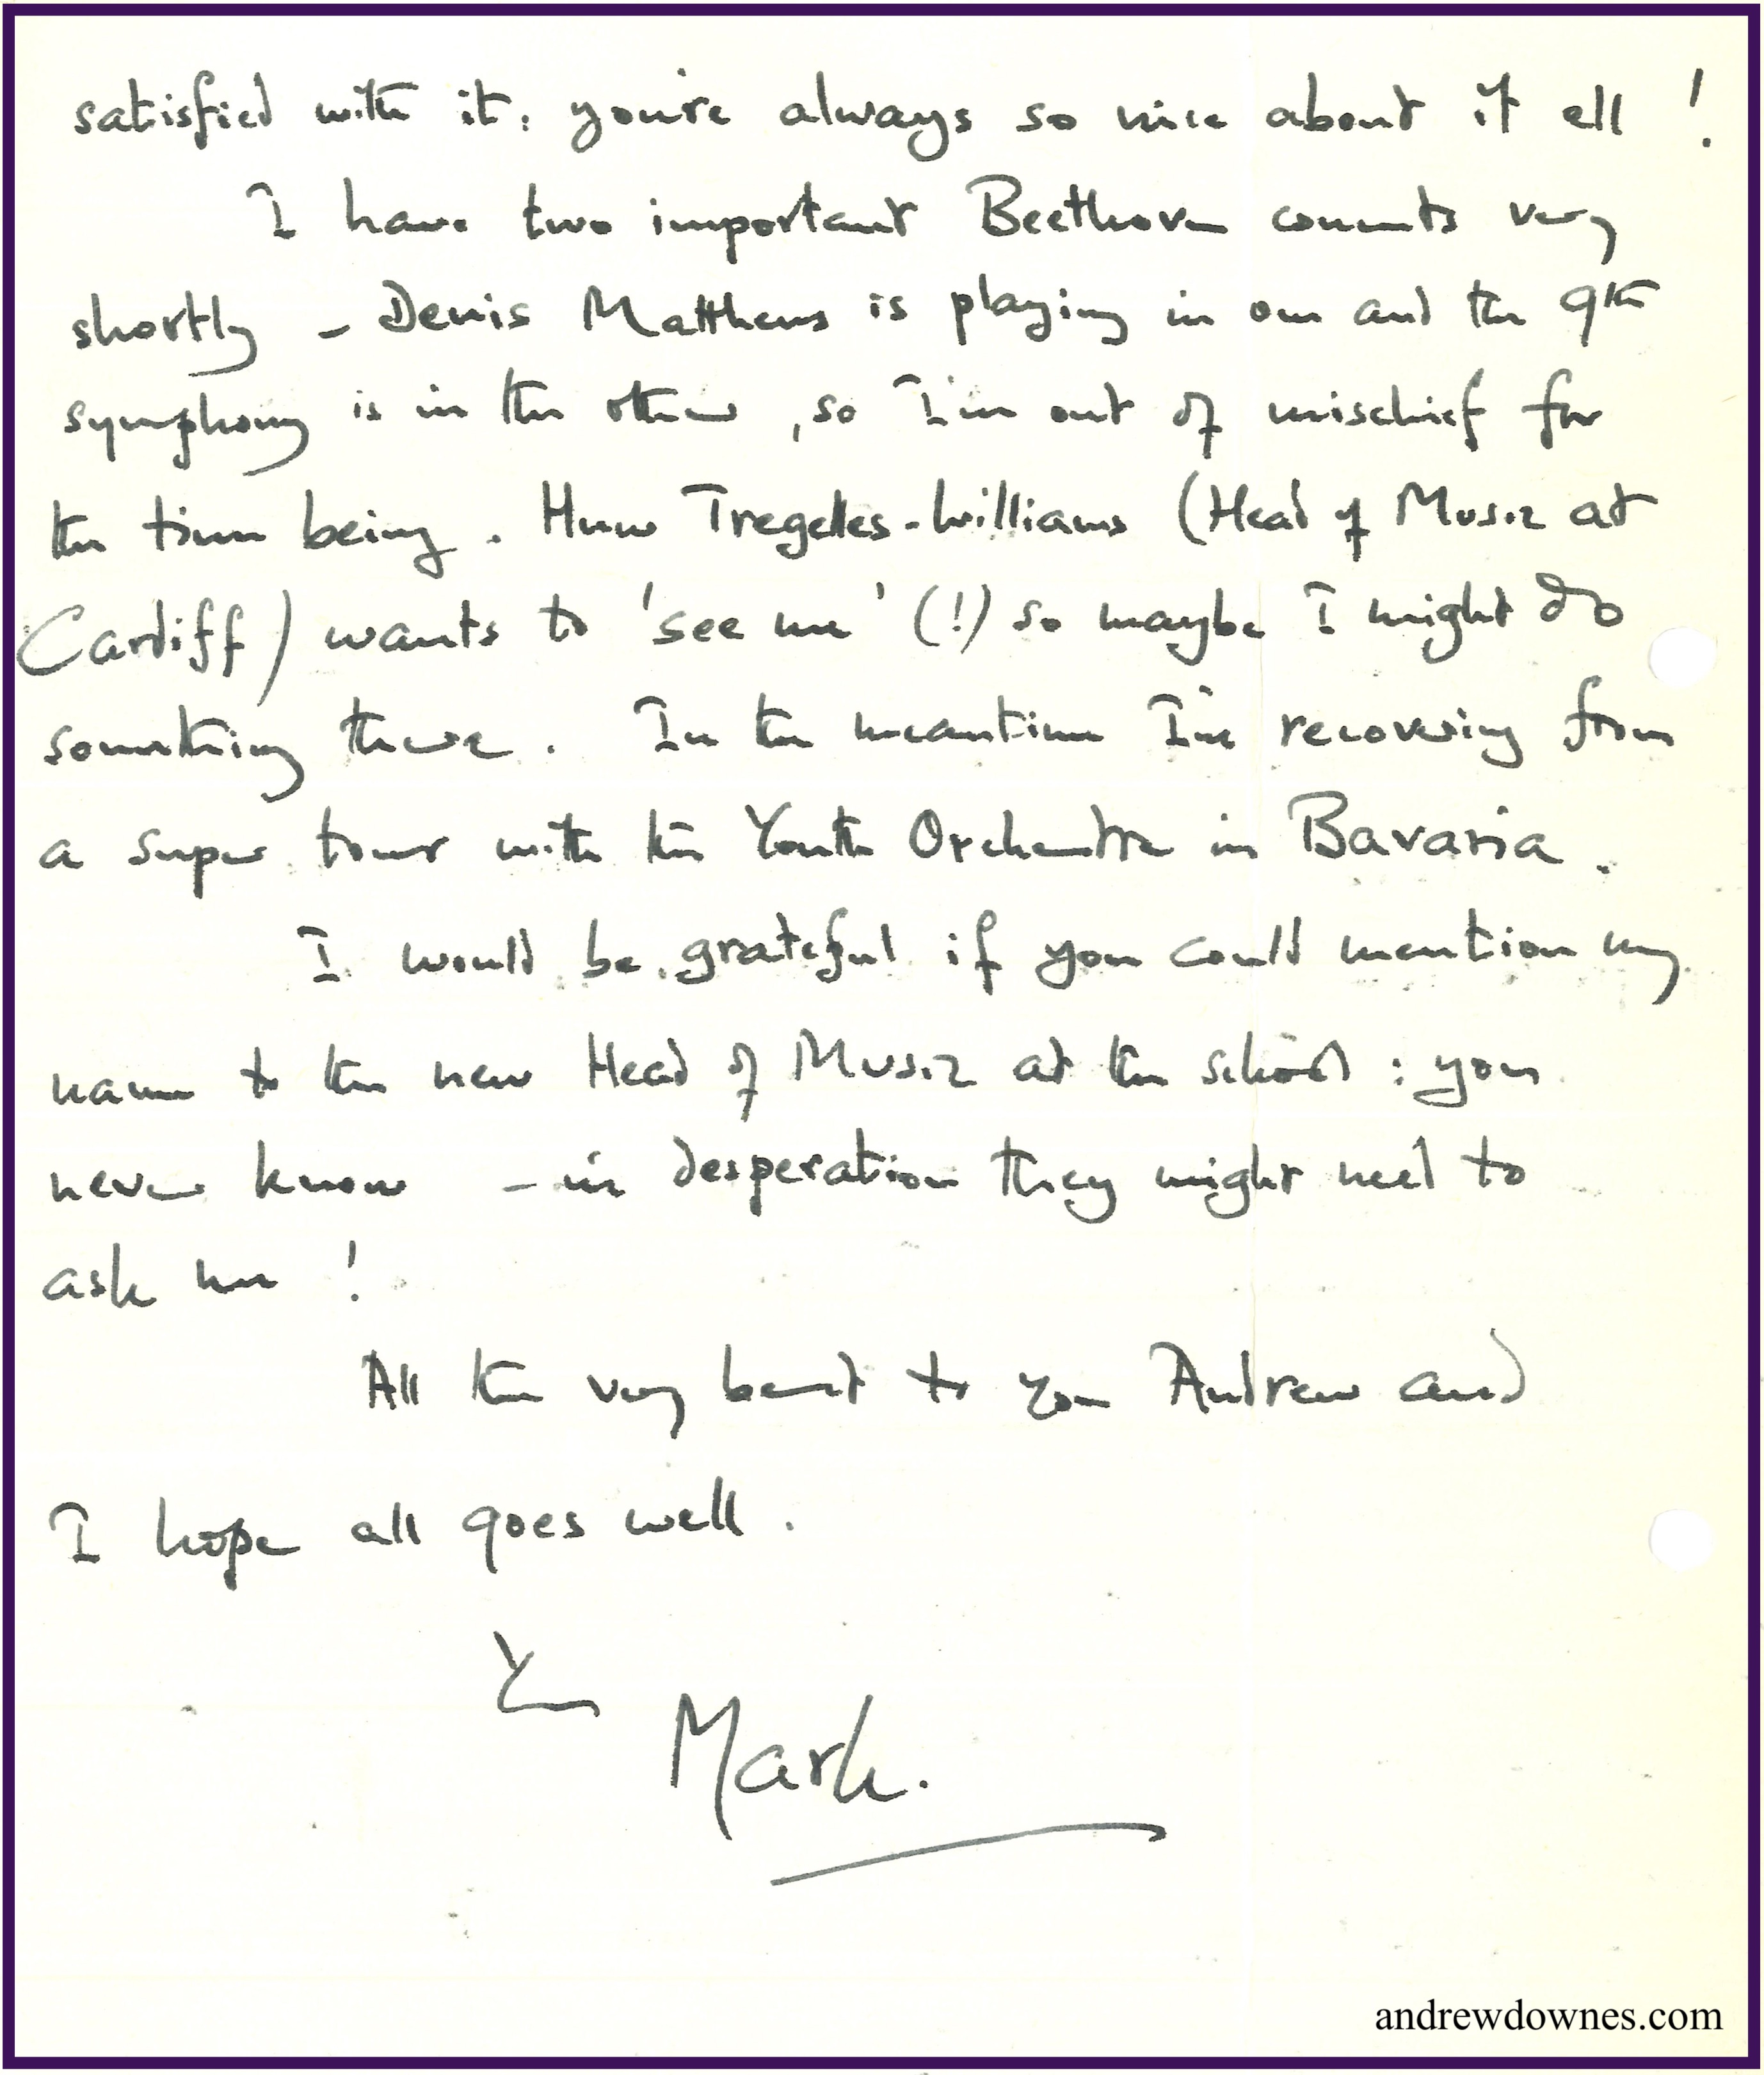 satisfied with it: you're always so nice about it all!
I have two important Beethoven concerts very
shortly – Denis Matthews is playing in one and the 9th
symphony is in the other, so I'm out of mischief for
the time being. Huw Tregelles-Williams (Head of Music at
Cardiff) wants to 'see me' (!) so maybe I might do
something there. In the meantime I'm recovering from
a super tour with the Youth Orchestra in Bavaria.
I would be grateful if you could mention my
name to the new Head of Music at the school: you
never know – in desperation they might need to
ask me!
All the very best to you Andrew and
I hope all goes well.
Yours
Mark.
andrewdownes.com